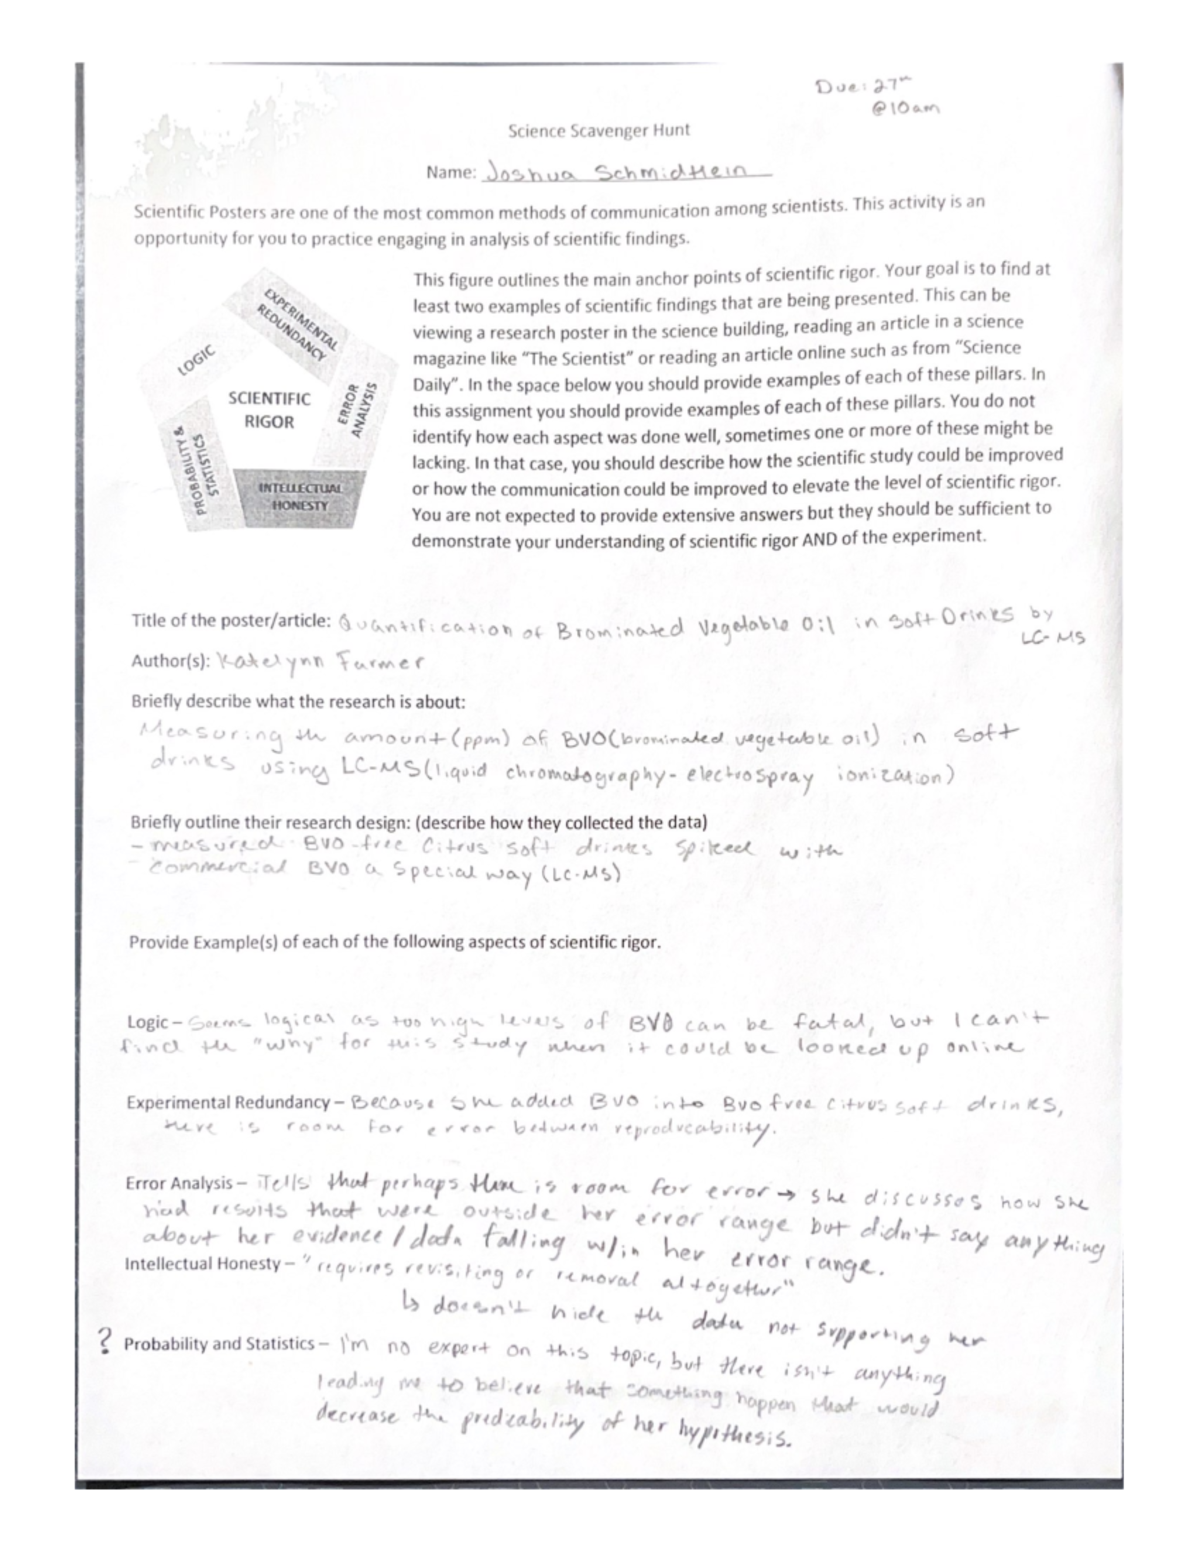 Due: 27th
@10am
Science Scavenger Hunt
Name: Joshua Schmidtlein
Scientific Posters are one of the most common methods of communication among scientists. This activity is an
opportunity for you to practice engaging in analysis of scientific findings.
EXPERIMENTAL
REDUNDANCY
LOGIC
SCIENTIFIC
RIGOR
ERROR
ANALYSIS
PROBABILITY &
STATISTICS
INTELLECTUAL
HONESTY
This figure outlines the main anchor points of scientific rigor. Your goal is to find at
least two examples of scientific findings that are being presented. This can be
viewing a research poster in the science building, reading an article in a science
magazine like “The Scientist” or reading an article online such as from “Science
Daily”. In the space below you should provide examples of each of these pillars. In
this assignment you should provide examples of each of these pillars. You do not
identify how each aspect was done well, sometimes one or more of these might be
lacking. In that case, you should describe how the scientific study could be improved
or how the communication could be improved to elevate the level of scientific rigor.
You are not expected to provide extensive answers but they should be sufficient to
demonstrate your understanding of scientific rigor AND of the experiment.
Title of the poster/article: Quantification of Brominated Vegetable Oil in Soft Drinks by
LC-MS
Author(s): Katelynn Farmer
Briefly describe what the research is about:
Measuring the amount (ppm) of BVO (brominated vegetable oil) in soft
drinks using LC-MS (liquid chromatography-electrospray ionization)
Briefly outline their research design: (describe how they collected the data)
- measured BVO-free citrus soft drinks spiked with
- commercial BVO a special way (LC-MS)
Provide Example(s) of each of the following aspects of scientific rigor.
Logic – Seems logical as too high levels of BVO can be fatal, but I can't
find the "why" for this study when it could be looked up online
Experimental Redundancy – Because she added BVO into BVO free citrus soft drinks,
there is room for error between reproducability.
Error Analysis – Tells that perhaps there is room for error → she discusses how she
had results that were outside her error range but didn't say anything
about her evidence/data falling w/in her error range.
Intellectual Honesty – "requires revisiting or removal altogether"
↳ doesn't hide the data not supporting her
? Probability and Statistics – I'm no expert on this topic, but there isn't anything
leading me to believe that something happen that would
decrease the predicability of her hypithesis.